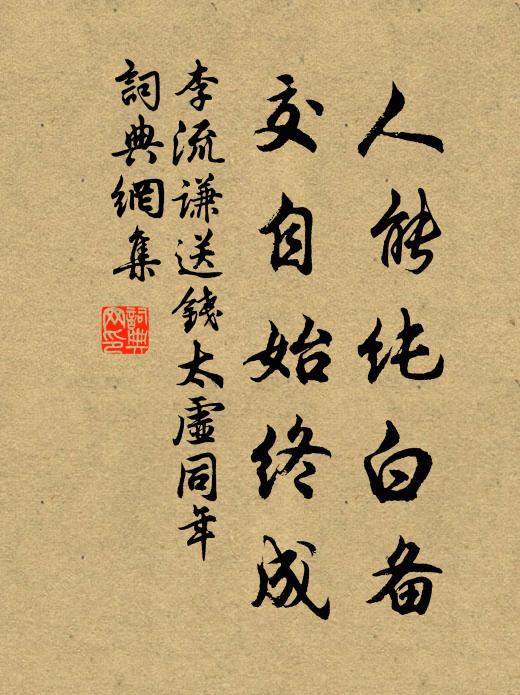 人能纯白备
交自始终成
李流谦送錢太虛同年
詞典網集
詞典网印